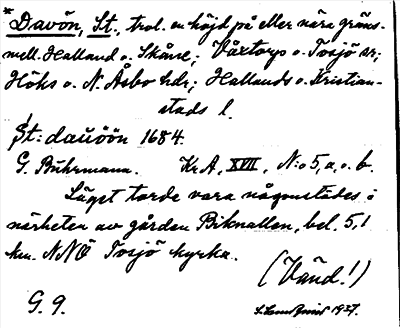 * Davön, St., trol. en höjd på eller nära gräns-
mell. Halland o. Skåne; Våxtorps o. Tosjö sr;
Höks o. N. Åsbo hdr; Hallands o. Kristian-
stads l.
St: dauöön 1684.
G. Buhrmann. KrA, XVII, N:o 5, a, o. b.
Läget torde vara någonstädes i
närheten av gården Biknallen, bel. 5,1
km. NNÖ Tosjö kyrka.
(Vänd!)
G. 9. 1927.